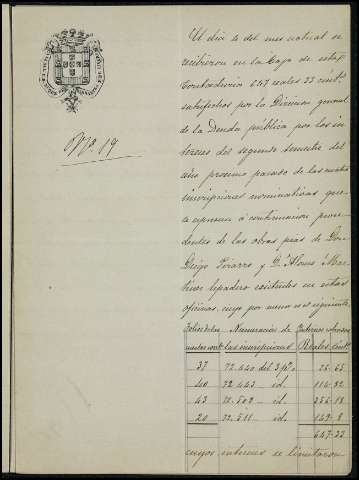 Nº 19
El dia 4 del mes actual se
recibieron en la Caja de esta
Contaduria 647 reales 23 cent.
satisfechos por la Direccion general
de la Deuda pública por los in
tereses del segundo semestre del
año proximo pasado de las cuatro
inscripciones nominativas que
se espresan á continuacion proce
dentes de las obras pias de Don
Diego Pizarro y Dn Alonso Mar
tinez espadero existentes en estas
oficinas, cuyo por menor es el siguiente.
Numeracion de Intereses
las inscripciones Reales Cent.
37 72.440 del 3 p% 26-65
40 72.443 id. 114-92
43 72.509 id. 356-18
20 72.511 id. 149-8
647-23
cuyos intereses se